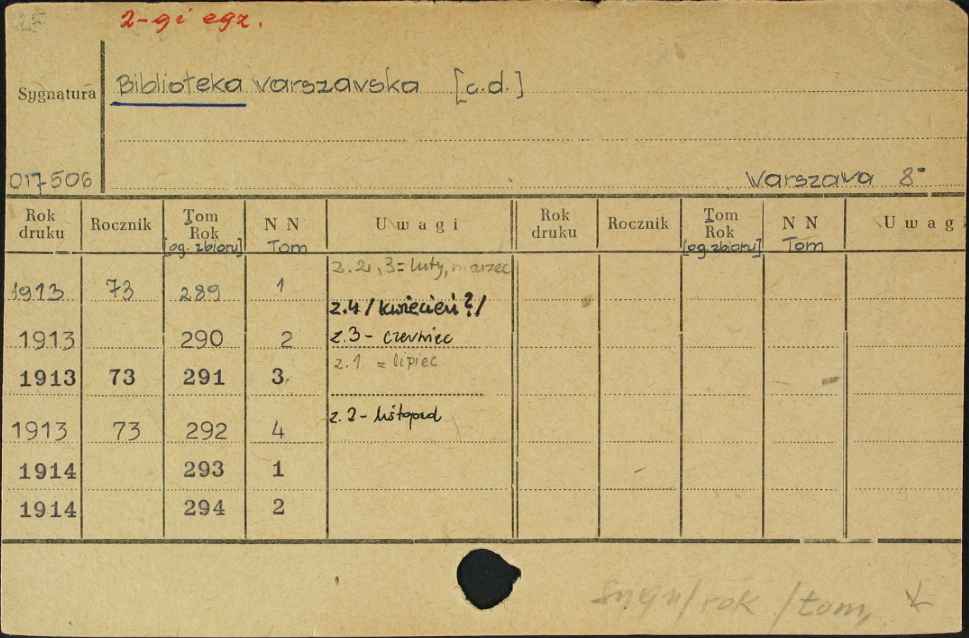 2-gi egz.
Biblioteka warszawska [c.d.]
Sygnatura
017506 Warszawa 8°
Rok druku Rocznik Tom Rok [og. zbioru] N N Tom Uwagi Rok druku Rocznik Tom Rok [og. zbioru] N N Tom Uwagi
z. 2, 3 = luty, marzec
1913 73 289 1
z.4 / kwiecień? /
1913 290 2 z.3 - czerwiec
z. 1 = lipiec
1913 73 291 3
z. 2 - listopad
1913 73 292 4
1914 293 1
1914 294 2
/ rok / tom,